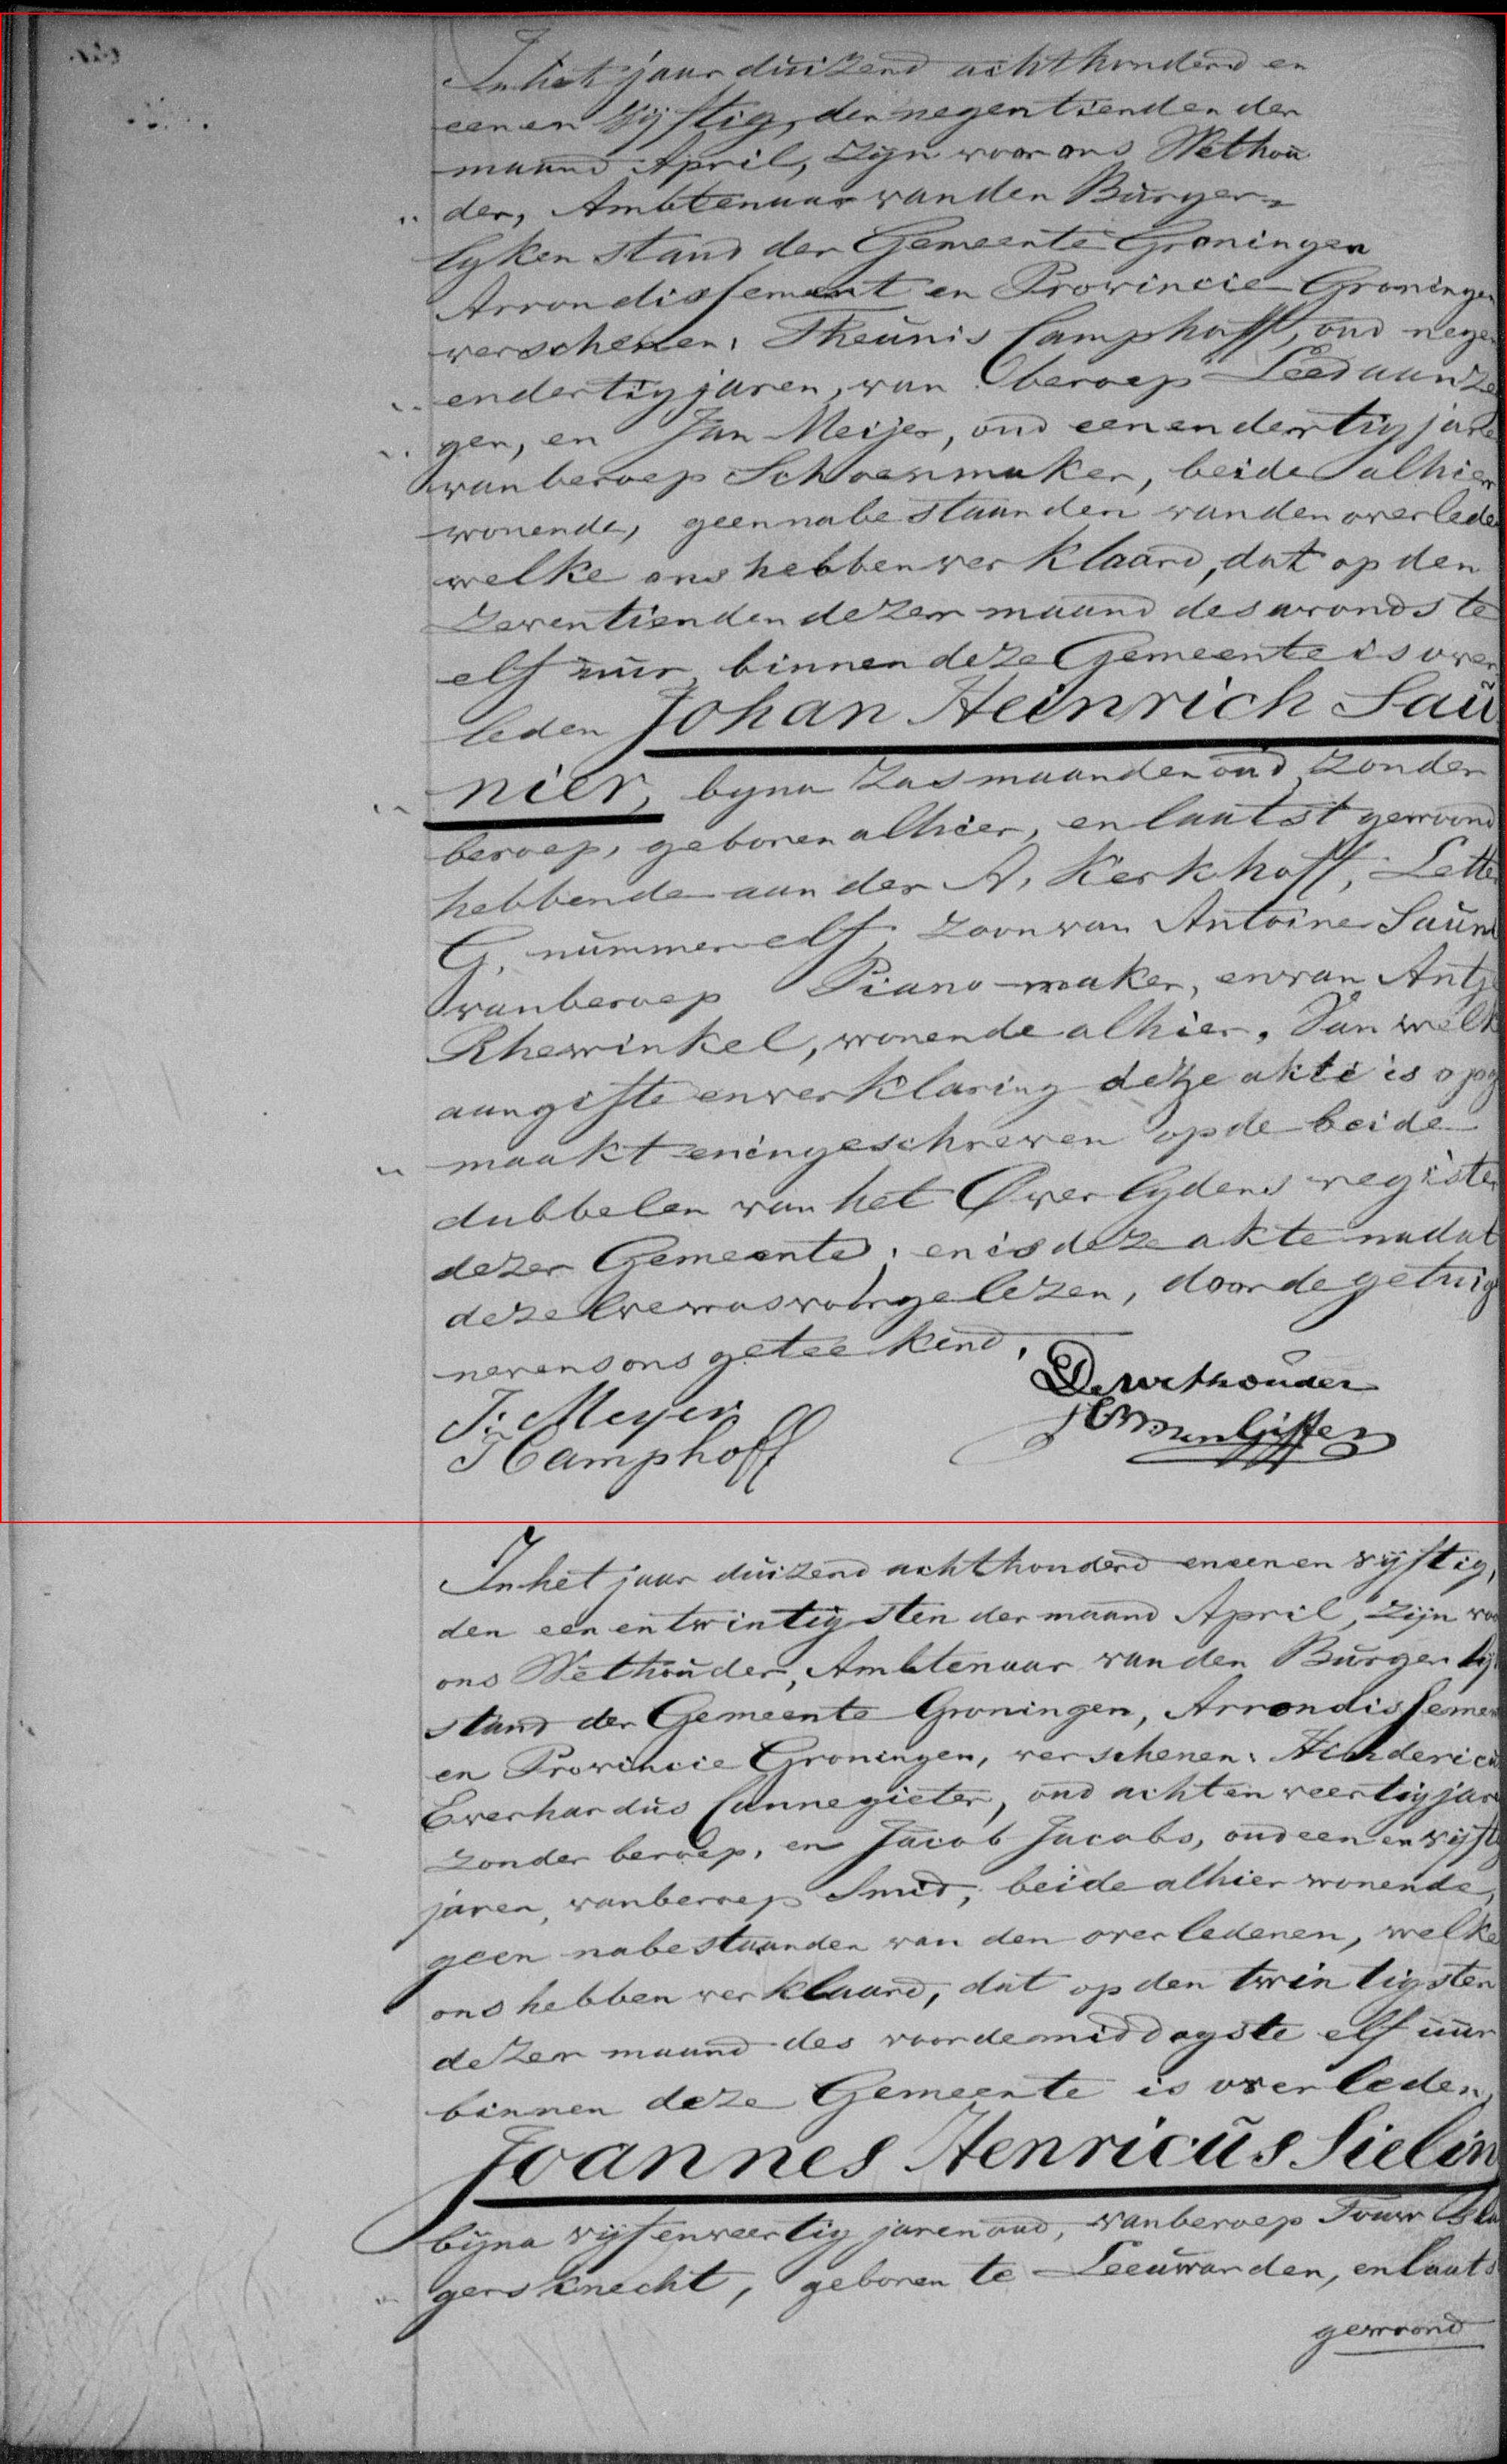 In het jaar duizend achthonderd en
eenen vyftig, den negentienden der
maand April, zyn voor ons Wethou
der, Ambtenaar van den Burger=
lyken stand der Gemeente Groningen
Arrondissement en Provincie Groningen
verschenen: Theunis Camphoff, oud negen
endertig jaren, van beroep Leedaanze
ger, en Jan Meijer, oud een en dertig jare
van beroep Schoenmaker, beide alhier
wonende, geen nabestaanden van den overlede
welke ons hebben verklaard, dat op den
zeventienden dezer maand des avonds te
elf uur, binnen deze Gemeente is over
leden Johan Heinrich Sau
nier, byna zes maanden oud, zonder
beroep, geboren alhier, en laatst gewoond
hebbende aan der A. Kerkhoff, Lette
G. nummer elf, zoon van Antoine Sauni
van beroep Piano-maker, en van Antje
Rhewinkel, wonende alhier. Van welk
aangifte en verklaring deze akte is opg
maakt en ingeschreven op de beide
dubbelen van het Overlydens register
dezer Gemeente; en is deze akte nadat
dezelve was voorgelezen, door de getuig
nevens ons geteekend.
De wethouder
J: Meyer
T Camphoff
In het jaar duizend achthonderd en eenen vyftig,
den een en twintigsten der maand April, zijn voo
ons Wethouder, Ambtenaar van den Burgerlij
stand der Gemeente Groningen, Arrondissemen
en Provincie Groningen, verschenen: Hindericu
Everhardus Cannegieter, oud acht en veertig jare
zonder beroep, en Jacob Jacobs, oud een en vyfti
jaren, van beroep Smid, beide alhier wonende,
geen nabestaanden van den overledenen, welke
ons hebben verklaard, dat op den twintigsten
dezer maand des voordemiddags te elf uur
binnen deze Gemeente is overleden,
Joannes Henricus Sielin
byna vyf en veertig jaren oud, van beroep Touwsla
gersknecht, geboren te Leeuwarden, en laats
gewoond